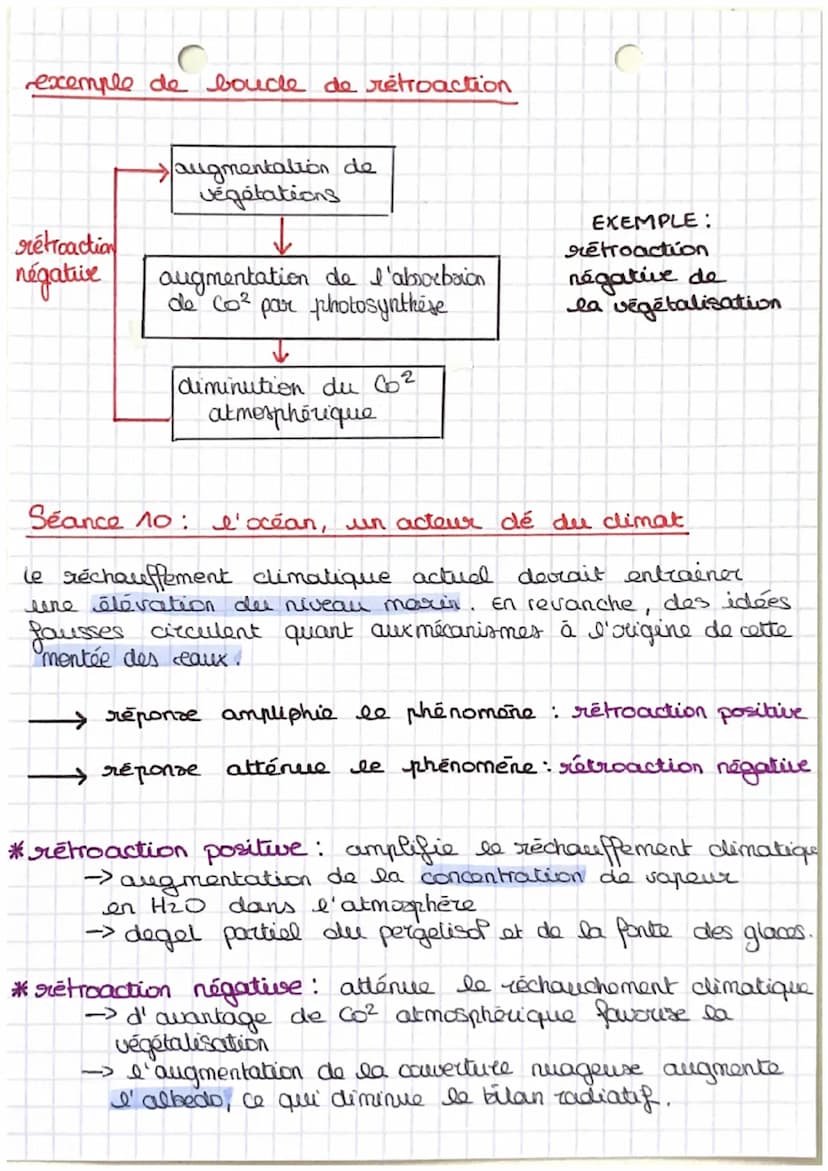 exemple de boucle de rétroaction
augmentation de
végétations
rétroaction
négative
EXEMPLE :
rétroaction
négative de
la végétalisation
augmentation de l'absorbsion
de CO² par photosynthèse
diminution du CO²
atmosphérique
Séance 10 : l'océan, un acteur clé du climat
le réchauffement climatique actuel devrait entrainer
une élévation du niveau marin. En revanche, des idées
fausses circulent quant aux mécanismes à l'origine de cette
montée des eaux.
→ réponse ampliphie le phénomène : rétroaction positive
→ réponse atténue le phénomène : rétroaction négative
* rétroaction positive : amplifie le réchauffement climatique
→ augmentation de la concentration de vapeur
en H2O dans l'atmosphère
→ degel partiel du pergelisol et de la fonte des glaces.
* rétroaction négative : atténue le réchauchement climatique
→ d'avantage de CO² atmosphérique favorise la
végétalisation
→ l'augmentation de la couverture nuageuse augmente
l'albedo, ce qui diminue le bilan radiatif.